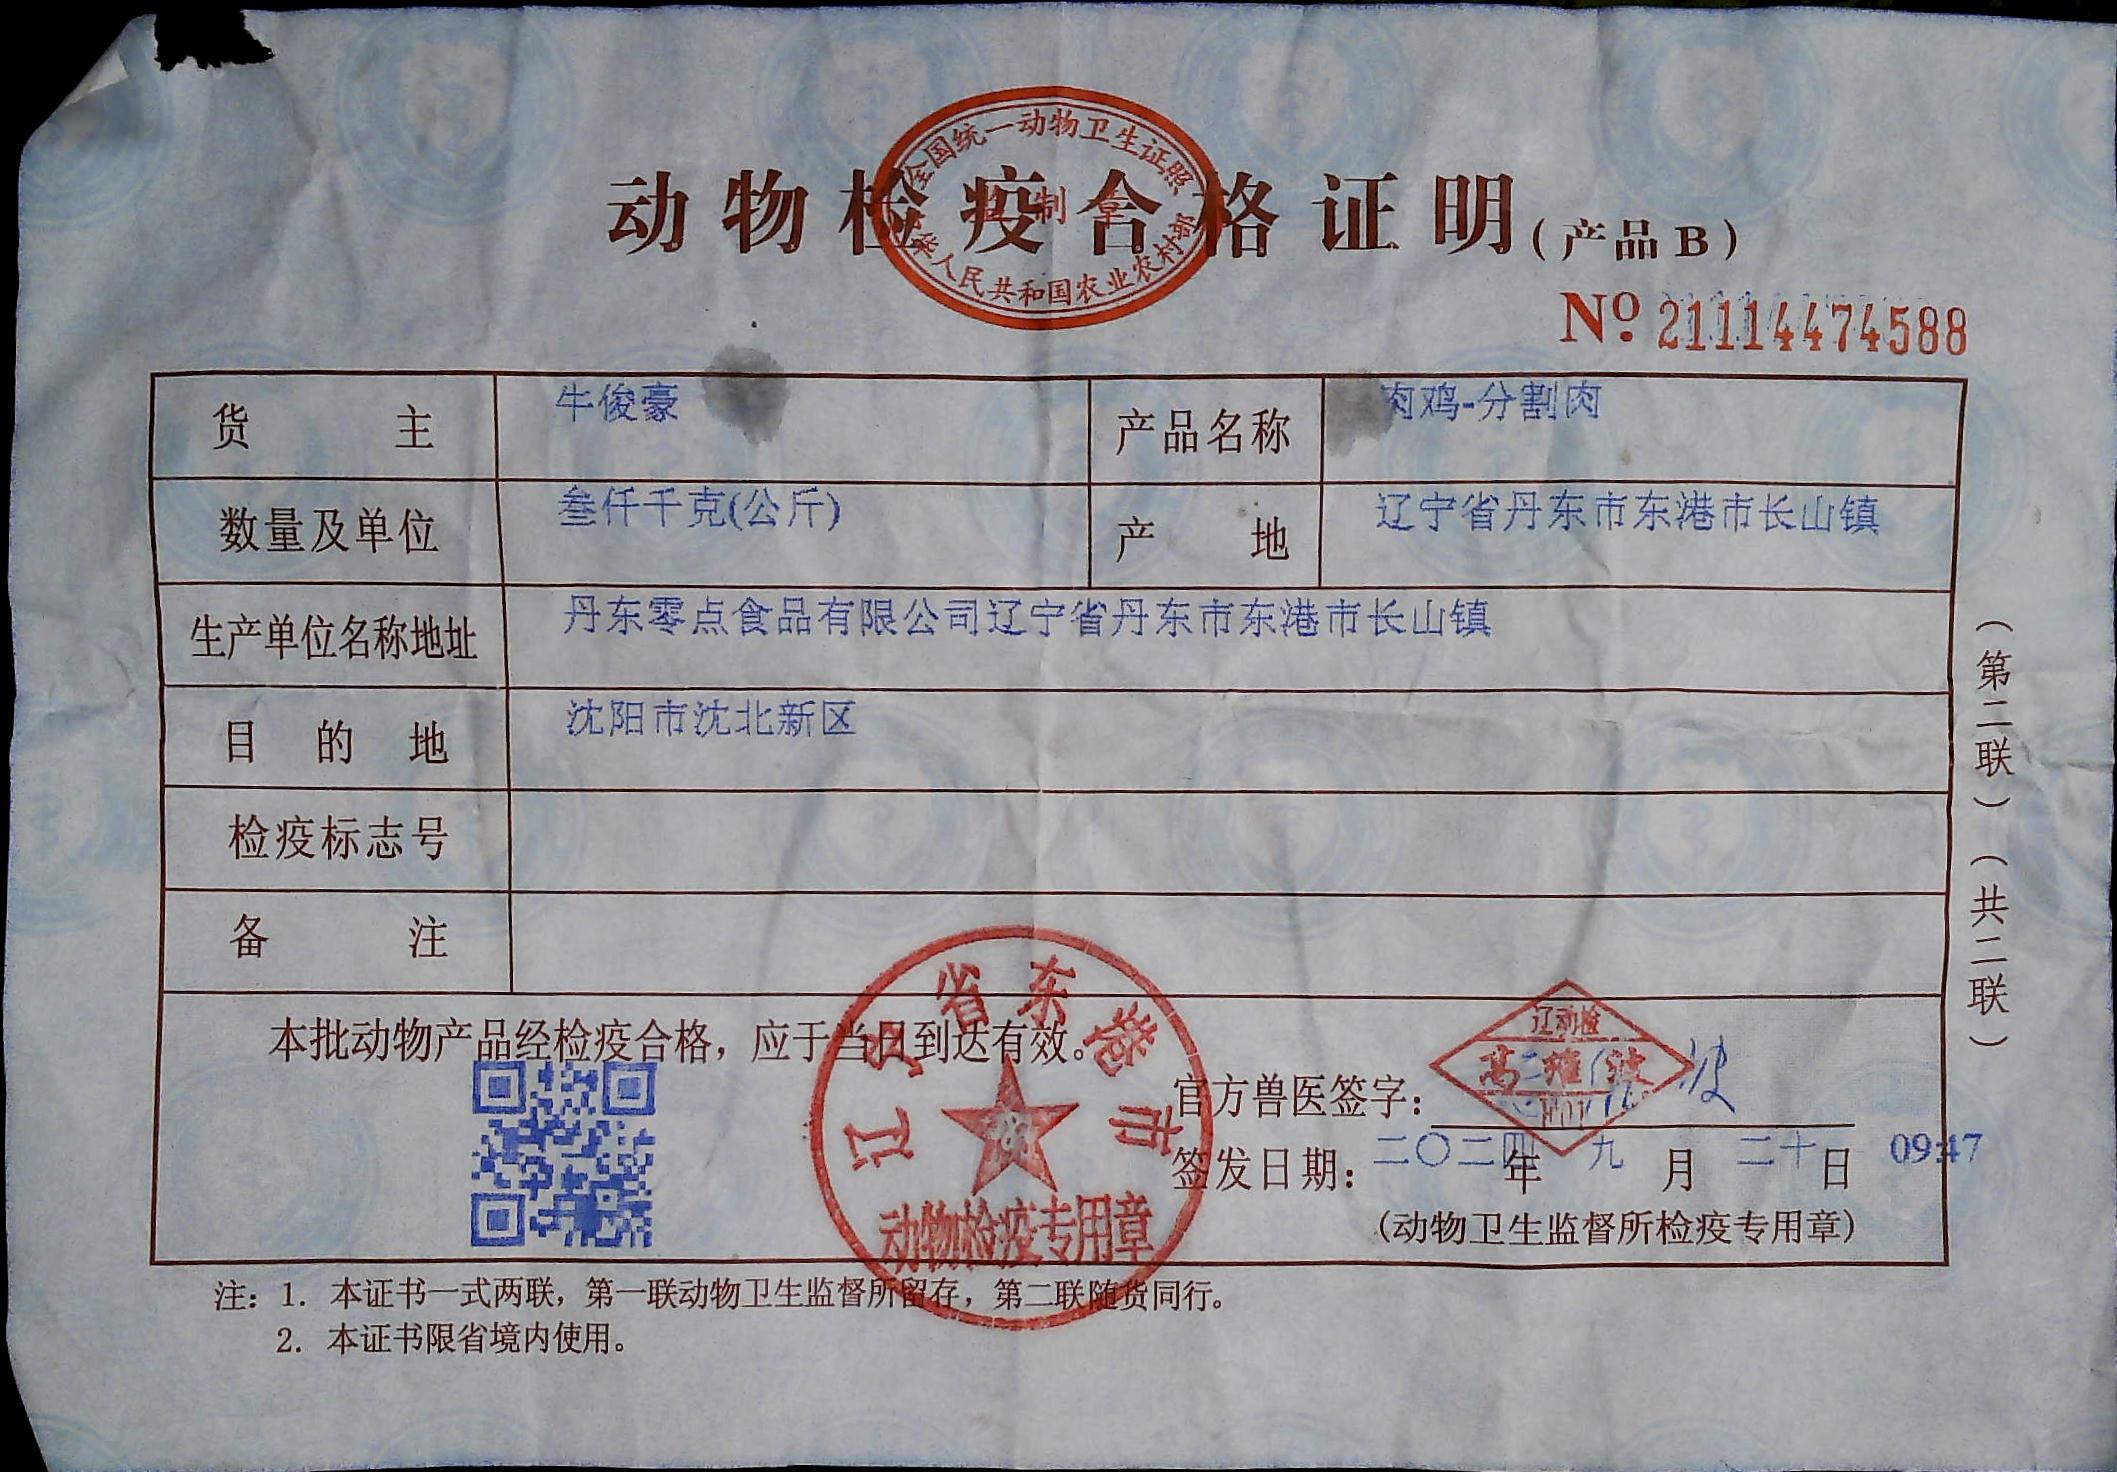 全国统一动物卫生证照
监制章
中华人民共和国农业农村部
动物检疫合格证明(产品B)
№ 21114474588
货主 牛俊豪 产品名称 肉鸡-分割肉
数量及单位 叁仟千克(公斤) 产地 辽宁省丹东市东港市长山镇
生产单位名称地址 丹东零点食品有限公司辽宁省丹东市东港市长山镇
目的地 沈阳市沈北新区
检疫标志号
备注
(第二联)(共二联)
本批动物产品经检疫合格，应于当日到达有效。
辽宁省东港市
动物检疫专用章
辽动检
官方兽医签字：
签发日期：二〇二四年 九月 二十日 09:47
(动物卫生监督所检疫专用章)
注：1. 本证书一式两联，第一联动物卫生监督所留存，第二联随货同行。
2. 本证书限省境内使用。